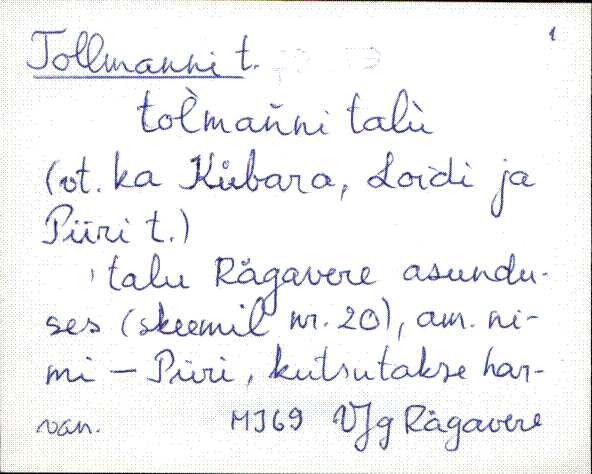 1
Tollmanni t.
tol̀mañni talù
(vt. ka Kübara, Loidi ja
Piiri t.)
talu Rägavere asundu-
ses (skeemil nr. 20), am. ni-
mi – Piiri, kutsutakse har-
van. MJ69 VJg Rägavere